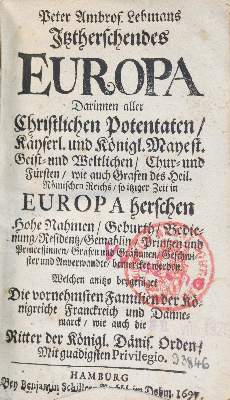 Peter Ambros. Lehmans
Jtztherschendes
EUROPA
Darinnen aller
Christlichen Potentaten /
Käyserl. und Königl. Mayest.
Geist- und Weltlichen / Chur- und
Fürsten / wie auch Grafen des Heil.
Römischen Reichs / so itziger Zeit in
EUROPA herschen
Hohe Nahmen / Geburth / Bedie-
nung / Residentz / Gemahlin / Printzen und
Princeßinnen / Grafen und Gräfinnen / Geschwi-
ster und Anverwandte / bemercket worden.
Welchen anitzo beygefüget
Die vornehmsten Familien der Kö-
nigreiche Franckreich und Däñe-
marck / wie auch die
Ritter der Königl. Dänis. Orden /
Mit gnädigsten Privilegio.
HAMBURG
Bey Benjamin Schiller im Dohm. 1697.